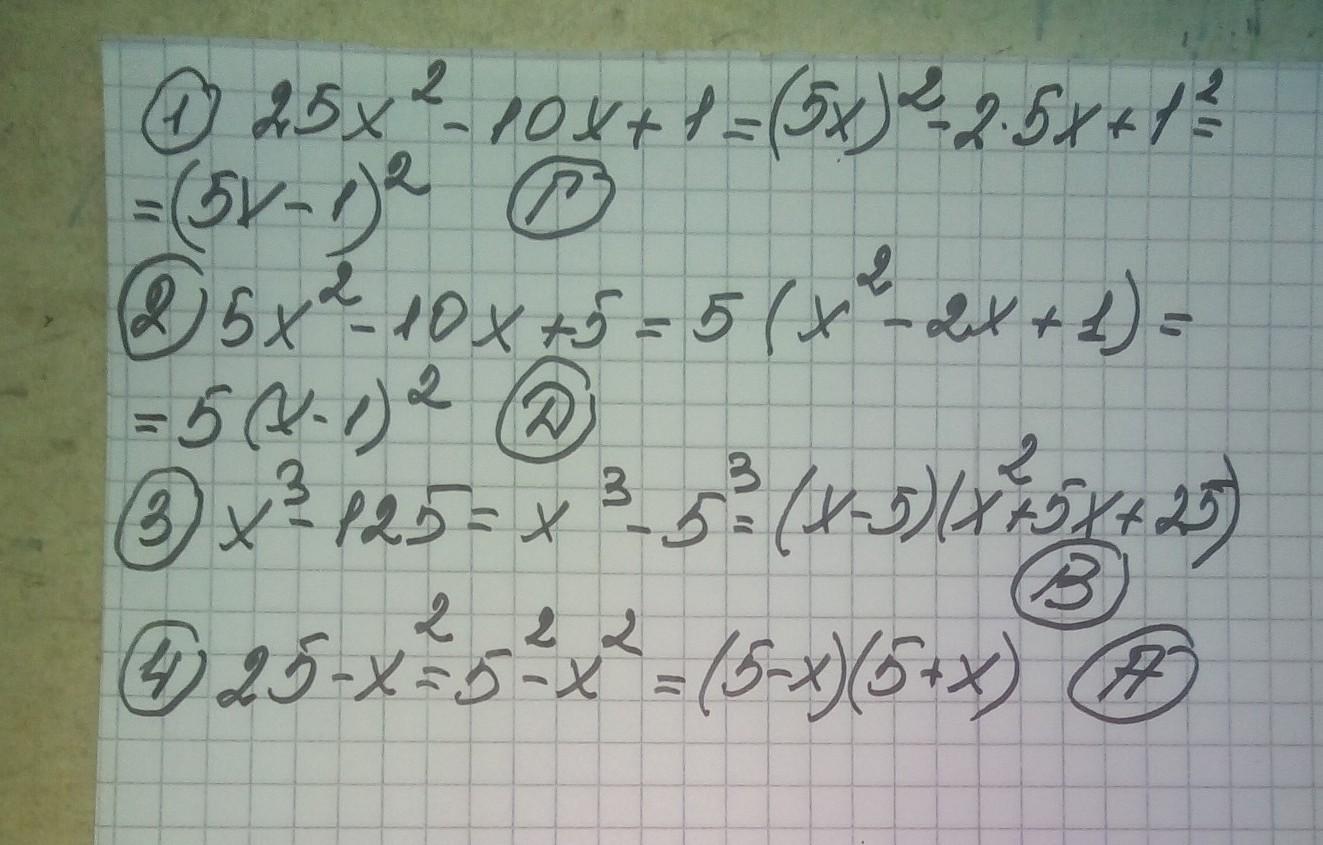 ① 25x² - 10x + 1 = (5x)² - 2·5x + 1² =
= (5x - 1)² Г
② 5x² - 10x + 5 = 5(x² - 2x + 1) =
= 5(x - 1)² Д
③ x³ - 125 = x³ - 5³ = (x - 5)(x² + 5x + 25)
В
④ 25 - x² = 5² - x² = (5 - x)(5 + x) А